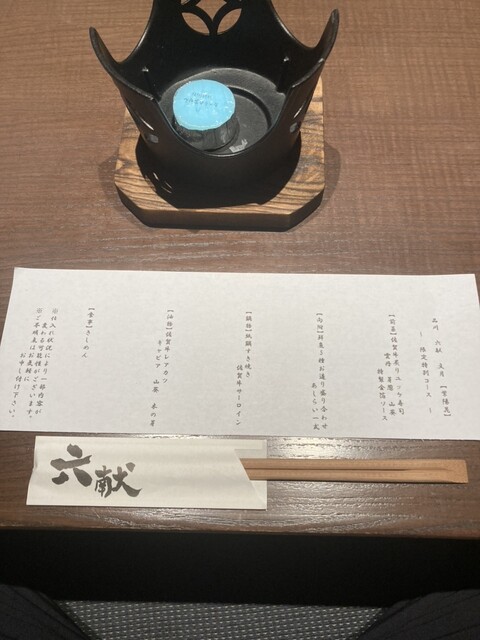 品川 六献 限定特別コース
【前菜】佐賀牛炙りユッケ寿司
雲丹 山葵 特製金箔ソース
【向附】鮮魚3種お造り盛り合わせ
あしらい一式
【鍋物】紙鍋すき焼き
佐賀牛サーロイン
【油物】佐賀牛レアカツ
キャビア 山葵 木の芽
【食事】きしめん
※仕入れ状況により一部内容が
変わる可能性がございます。
※ご不明点はお気軽に
お申し付け下さい。
六献